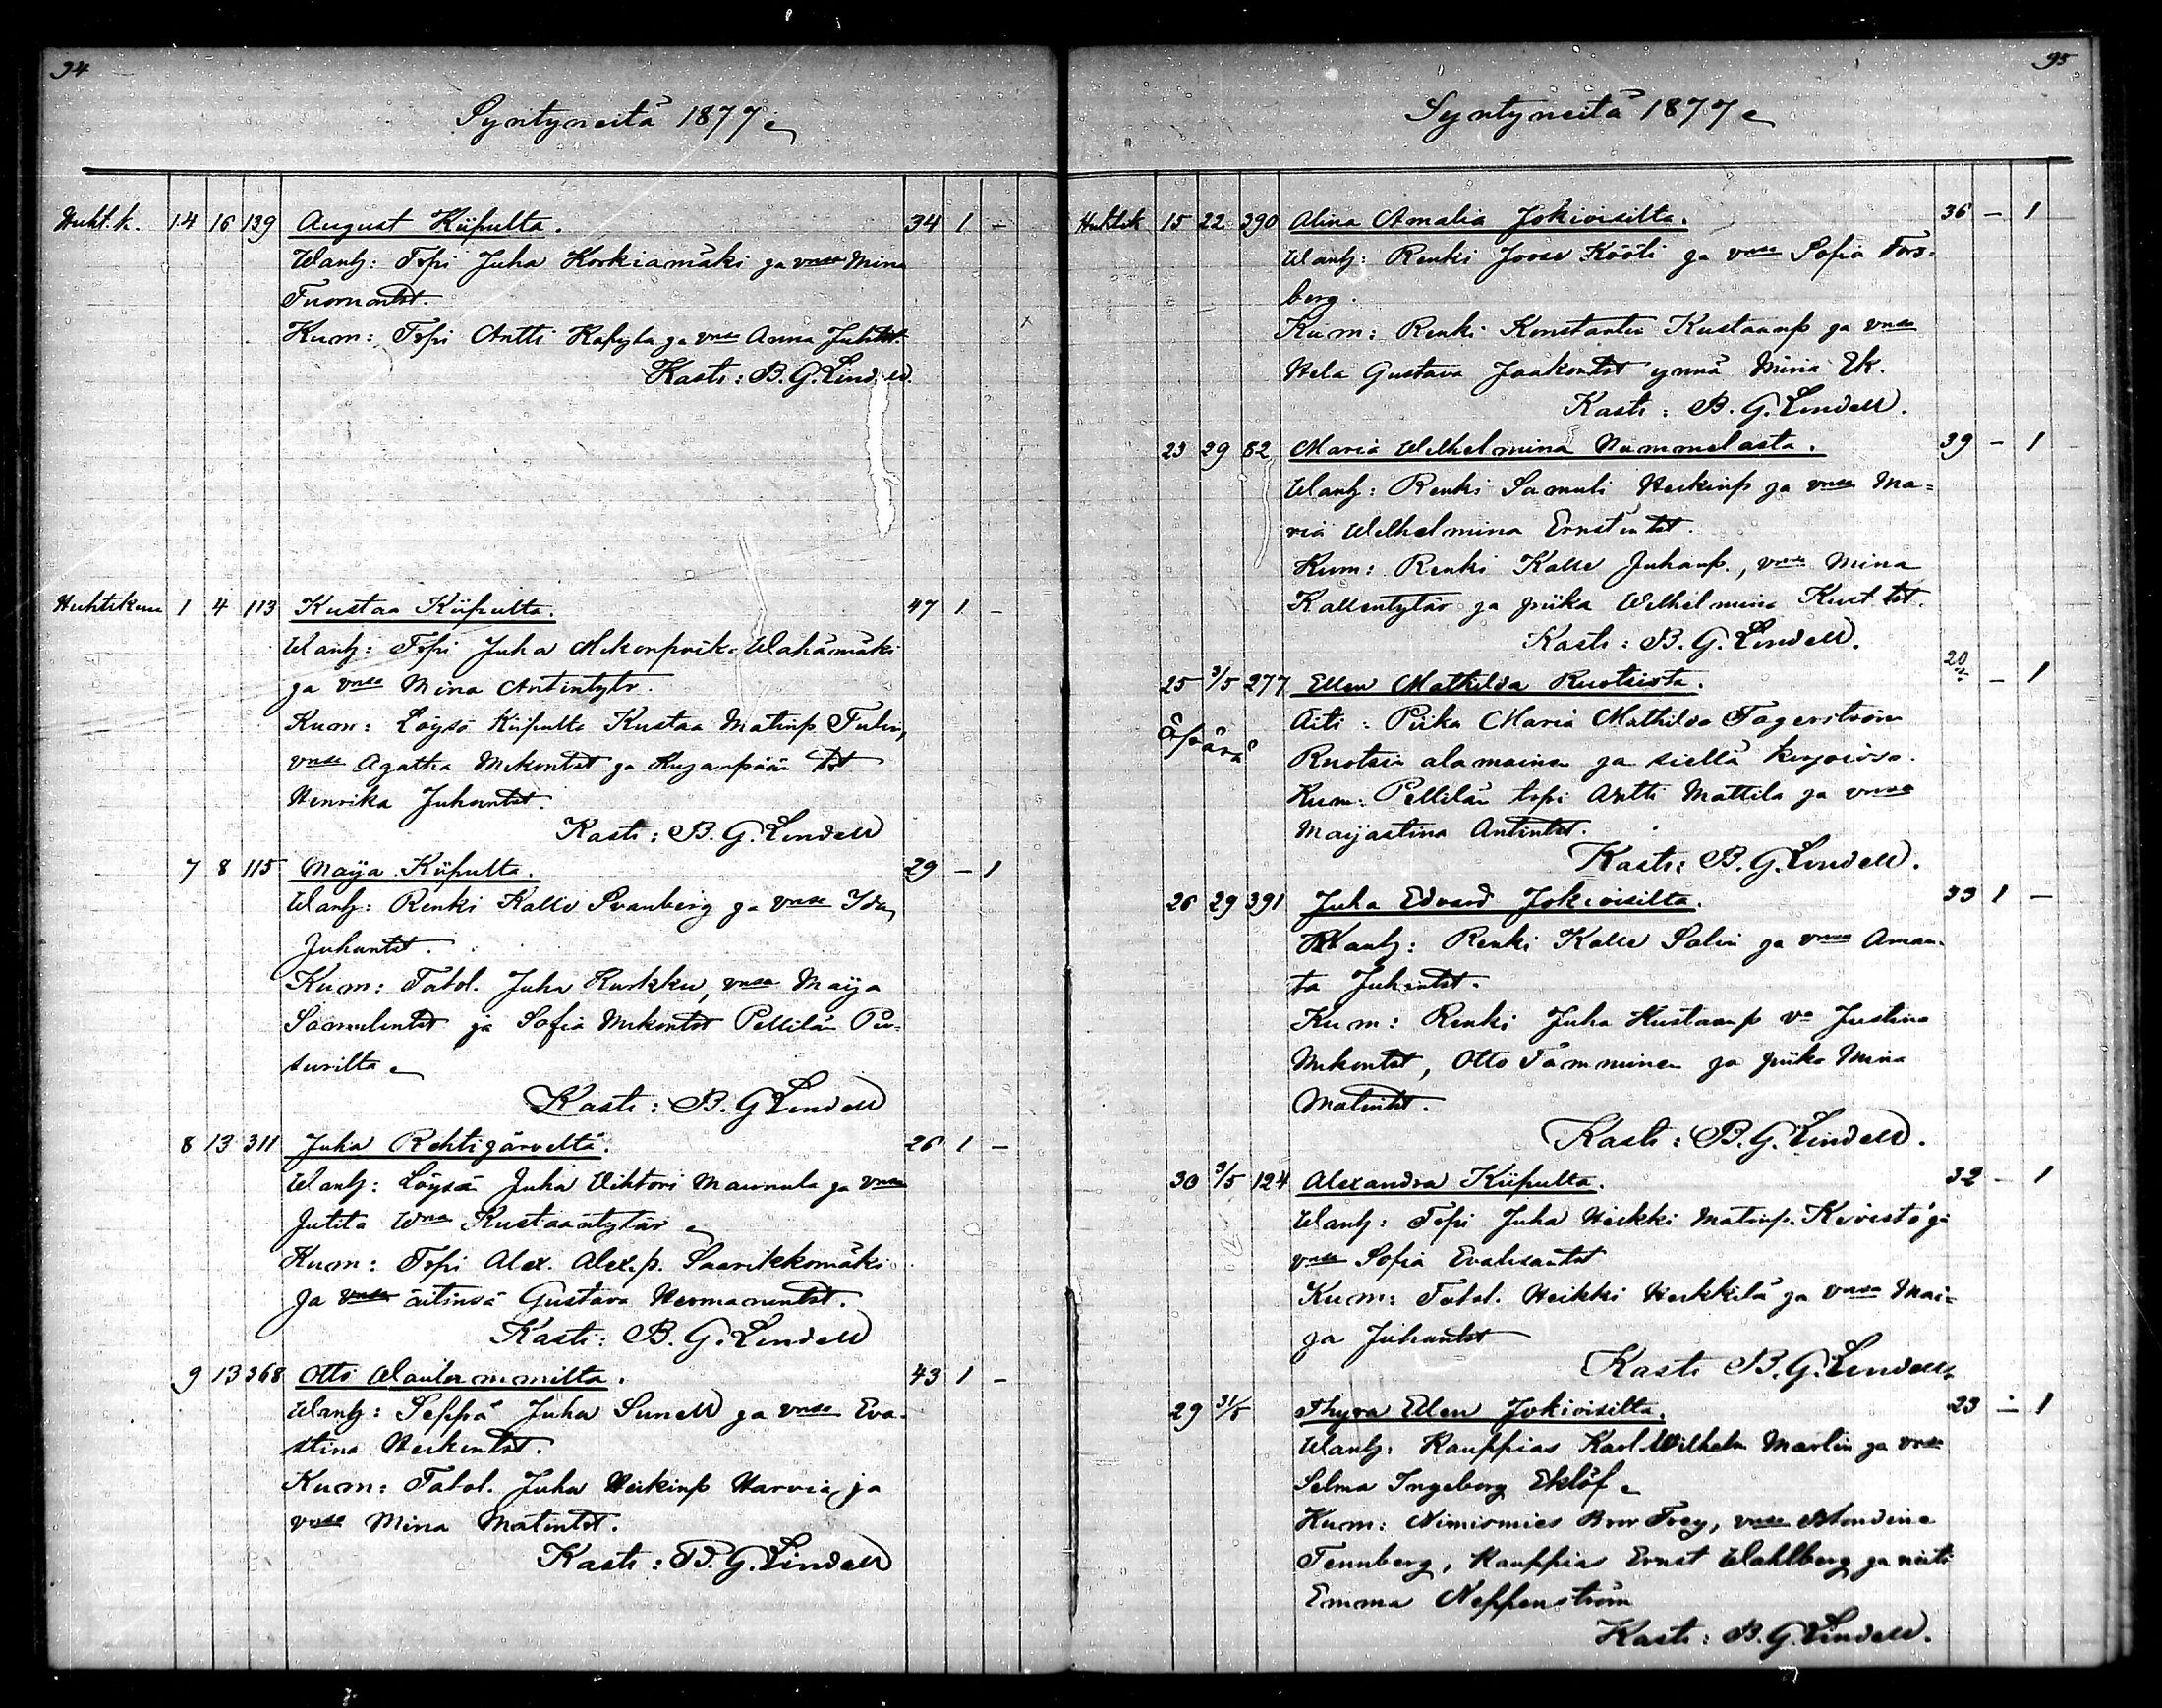 94
Syntyneitä 1877.
Huht.k. 14 16 139 August Kiipulta. 34 1 -
Wanh: Topi Juha Korkiamäki ja vmsa Mina
Tuomantrt.
Kum: Topi Antti Hapyla ja vmsa Anna Juhtrt.
Kasti: B. G. Lindell.
Huhtikuu 1 4 113 Kustaa Kiipulta. 47 1 -
Wanh: Topi Juha Mikonpoika Wahämäki
ja vmsa Mina Antintytr.
Kum: Löysä Kiipulta Kustaa Matinp Tulin,
vmsa Agatha Mikontrt ja Kujanpään trt
Henrika Juhantrt.
Kasti: B. G. Lindell
7 8 115 Maija Kiipulta. 29 - 1
Wanh: Renki Kalle Svanberg ja vmsa Ida
Juhantrt.
Kum: Talol. Juha Kurkku, vmsa Maija
Samulintrt ja Sofia Mikontrt Pellilän Pu-
surilta
Kasti: B. G Lindell
8 13 311 Juha Rehtijärveltä. 26 1 -
Wanh: Löysä Juha Viktori Maunula ja vmsa
Jutita Wna Kustaantytär
Kum: Topi Alex. Alex.p. Saarikkomäki
ja vmsa äitinsä Gustava Hermanintrt.
Kasti: B. G. Lindell
9 13 368 Otto Wantermmilta. 43 1 -
Wanh: Seppä Juha Sunell ja vmsa Eva-
stina Heikintrt.
Kum: Talol. Juha Heikinp Harvia ja
vmsa Mina Matintrt.
Kasti: B. G. Lindell
95
Syntyneitä 1877
Huhtik 15 22 390 Alina Amalia Jokioisilta. 36 - 1
Wanh: Renki Joose Kööli ja vmsa Sofia Fors-
berg.
Kum: Renki Konstantin Kustaanp ja vmsa
Hela Gustava Jaakontrt ynnä Mina Ek.
Kasti: B. G. Lindell.
23 29 82 Maria Wilhelmina Nummelasta. 39 - 1
Wanh: Renki Samuli Heikinp ja vmsa Ma-
ria Wilhelmina Ernstintrt.
Kum: Renki Kalle Juhanp., vmsa Mina
Kallentytär ja piika Wilhelmina Kust.trt.
Kasti: B. G. Lindell.
25 3/5 277 Ellen Mathilda Ruotsista. 20 - 1
Äpärä
Äiti: Piika Maria Mathilda Fagerström
Ruotsin alamainen ja siellä kirjoissa.
Kum: Pellilän topi Antti Mattila ja vmsa
Maijastina Antintrt.
Kasti: B. G. Lindell.
26 29 391 Juha Edvard Jokioisilta. 33 1 -
Wanh: Renki Kalle Salin ja vmsa Aman-
ta Juhantrt.
Kum: Renki Juha Kustaanp va Justina
Mikontrt, Otto Tamminen ja piika Mina
Matintrt.
Kasti: B. G. Lindell.
30 3/5 124 Alexandra Kiipulta. 32 - 1
Wanh: Topi Juha Heikki Matinp. Kivistö ja
vmsa Sofia Evalisantrt
Kum: Talol. Heikki Heikkilä ja vmsa Mai-
ja Juhantrt
Kasti B. G. Lindell.
29 31/5 Thyra Ellen Jokioisilta. 23 - 1
Wanh: Kauppias Karl Wilhelm Marlin ja vmsa
Selma Ingeborg Eklöf
Kum: Nimismies Bror Frey, vmsa Blondine
Tennberg, Kauppias Ernst Wahlberg ja neiti
Emma Neppenström
Kasti: B. G. Lindell.